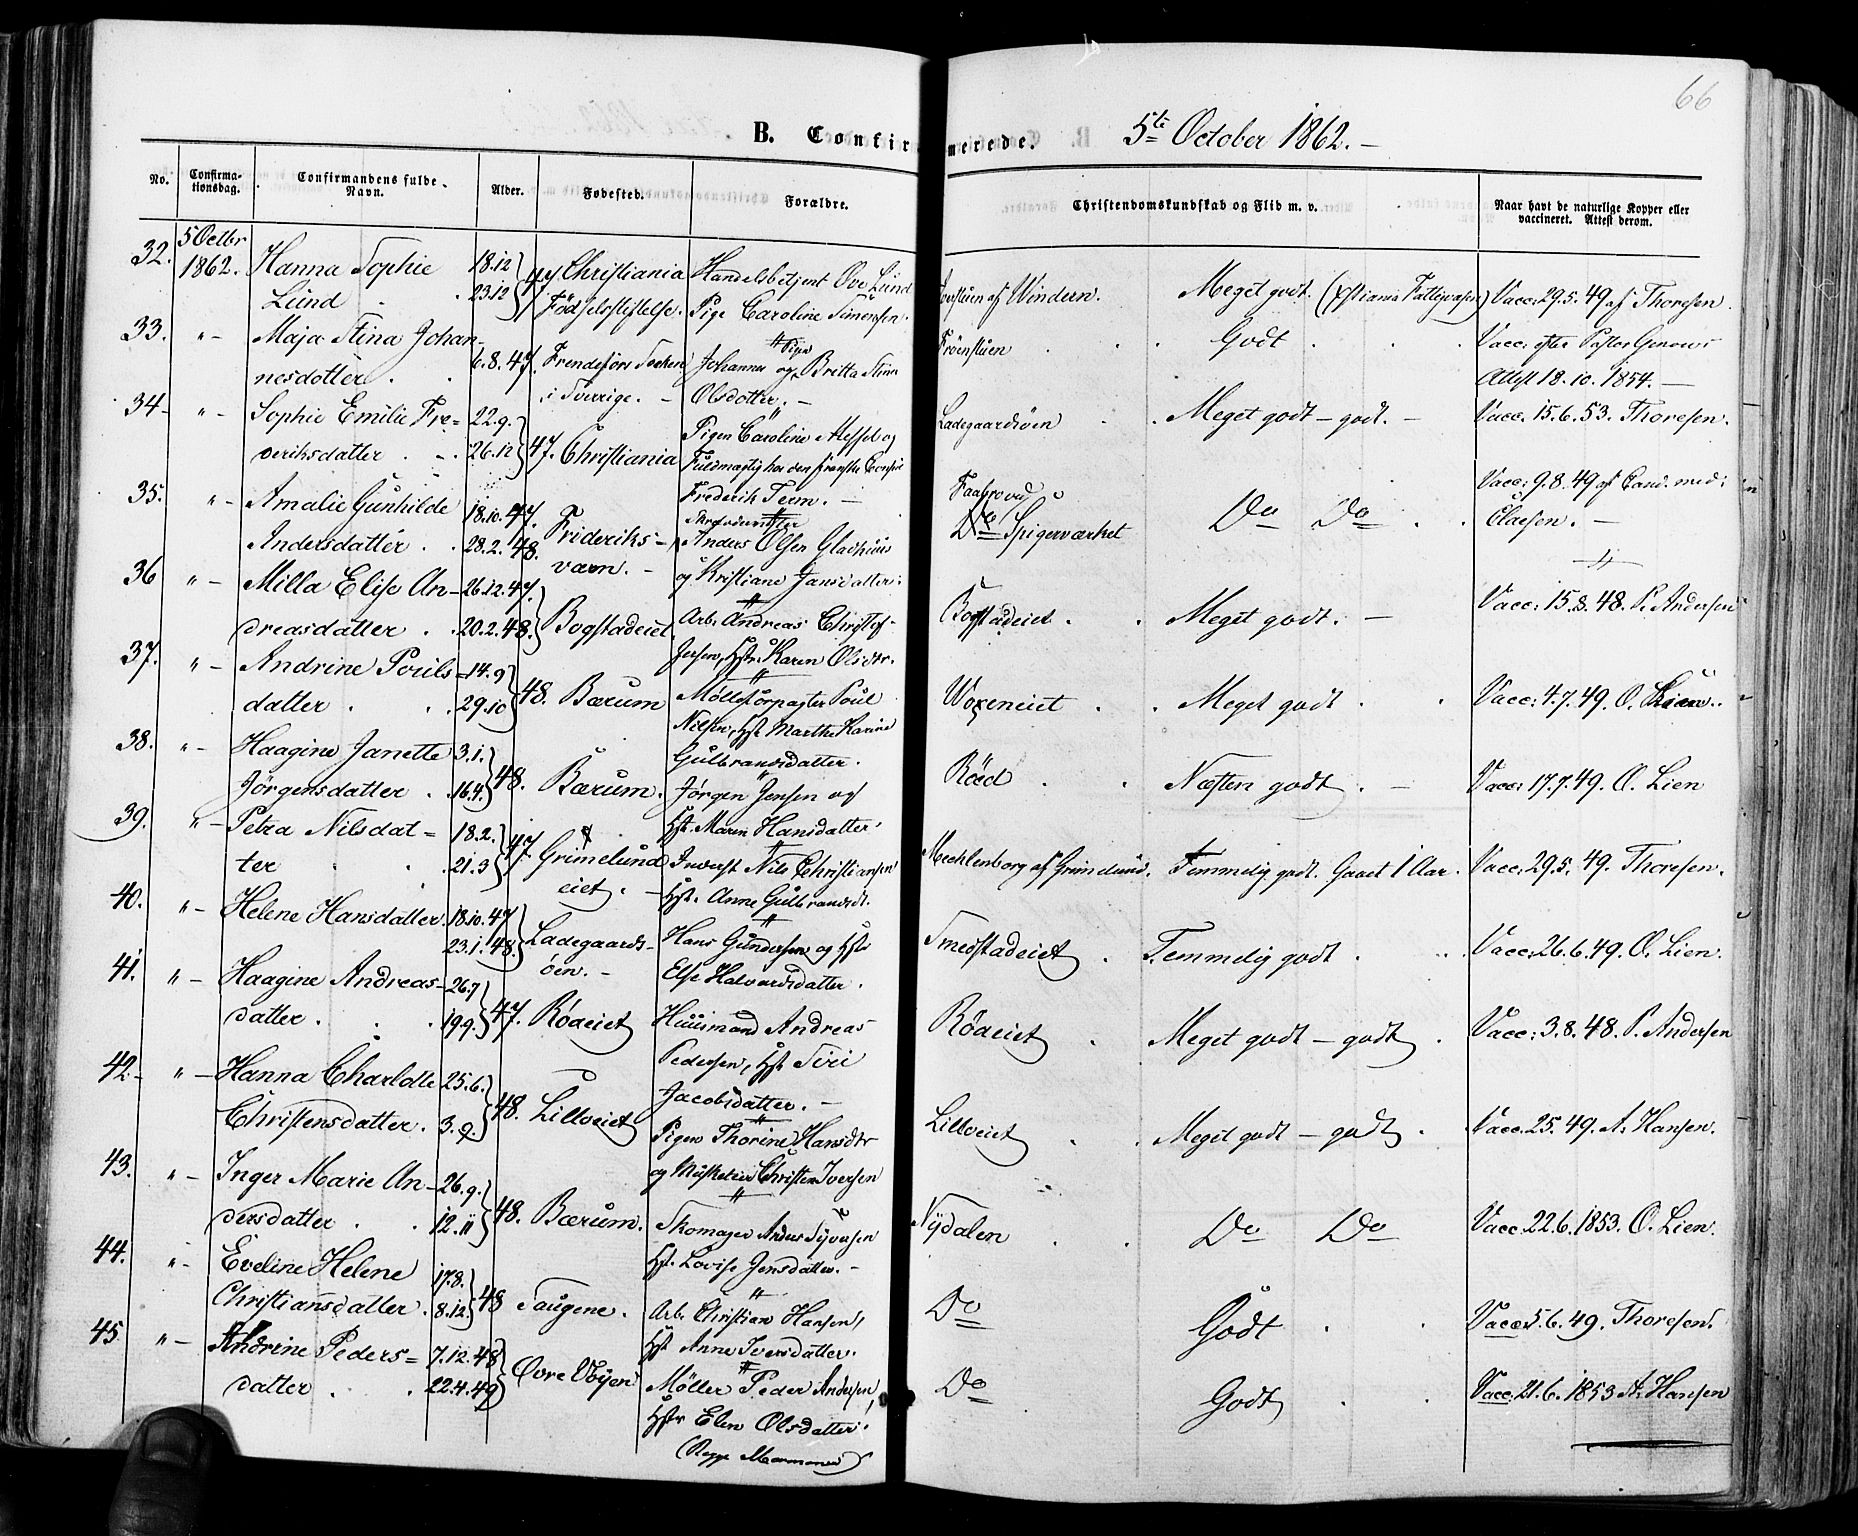 66
B. Confirmerede. 5te October 1862.
No. Confirmationsdag. Confirmandens fulde Navn. Alder. Fødested. Forældre. Christendomskundskab og Flid m. v. Naar havt de naturlige Kopper eller vaccineret. Attest derom.
32. 5 Octbr 1862. Hanna Sophie 18.12 47 Christiania Handelsbetjent Ove Lund af Vindern. Meget godt. (Xstiania Fattigvæsen) Vacc: 29.5.49 af Thoresen.
Lund 23.12 Födselsstiftelse. Pige Caroline Simonsen.
33. " - Maja Stina Johan- 6.8.47. Johannes og Pige Britta Stina Frøenstuen Godt Vacc: efter Pastor
nesdotter. i Sverrige. - Olsdotter. - Attest 18.10.1854. -
34 " - Sophie Emilie Fre= 22.9. 47. Christiania Pigen Caroline Messel og Ladegaardsøen Meget godt - godt. - Vacc: 15.6.53. Thoresen.
deriksdatter. 26.12 Fuldmægtig hos den franske Consul
Frederik Term. -
35. " - Amalie Gunhilde 18.10.47. Frideriks- Anders Olsen Gladhuus Faabro ved Do Do Vacc: 9.8.49 af Cand. med:
Andersdatter. 28.2.48. værn. - og Kristiane Jansdatter. Spigerværket Claesen. -
36 " - Milla Elise An- 26.12.47. Bogstadeiet Arb. Andreas Christof- Bogstadeiet. Meget godt. - Vacc: 15.8.48. P. Andersen
dreasdatter. 20.2.48. fersen, Hstr. Karen Olsdtr.
37. " - Andrine Pouls= 14.9 48. Bærum Møllforpagter Poul Voxeneiet Meget godt Vacc: 4.7.49. O. Lien.
datter 29.10 Nilsen, Hst Marthe Karine
Gulbrandsdatter.
38. " - Haagine Janette 3.1. 48. Bærum. Jørgen Jensen og Røed Næsten godt. - Vacc: 17.7.49. O. Lien
Jörgensdatter. 16.4. Hst. Maren Hansdatter.
39. " - Petra Nilsdat= 18.2. 47. Grimelund Inderst Nils Christiansen Mechlenborg af Grimelund. Temmelig godt. Gaaet 1 Aar. Vacc: 29.5.49. Thoresen.
ter 21.3 eiet. - Hst. Anne Gulbrandsdt.
40. " - Helene Hansdatter. 18.10.47 Ladegaards- Hans Gundersen og Hstr Smedstadeiet. Temmelig godt. Vacc: 26.6.49. O. Lien.
23.1.48. öen. - Else Halvordsdatter.
41. " - Haagine Andreas- 26.7 47. Röaeiet Huusmand Andreas Röaeiet Meget godt - godt. Vacc: 3.8.48. P. Andersen
datter. 19.9. Pedersen, Hst Siri
Jacobsdatter. -
42- " - Hanna Charlotte 25.6. 48. Lilloeiet Pigen Thorine Hansdtr Lilloeiet Meget godt - godt. Vacc: 25.49. A. Hansen.
Christensdatter. 3.9. og Musketeer Christen Iversen
43. " - Inger Marie An- 26.9. 48. Bærum. Skomager Anders Syversen Nydalen Do Do Vacc. 22.6.1853. O. Lien.
dersdatter. 12.11 Hst. Lovise Jensdatter. -
44. " - Eveline Helene 17.8. 48 Saugene. Arb. Christian Hansen, Do Godt Vacc: 5.6.49. Thoresen.
Christiansdatter. 8.12. Hst Anne Iversdatter.
45 " - Andrine Peders= 7.12.48 Øvre Vöyen Møller Peder Andersen, Do Godt Vacc: 21.6.1853 A. Hansen
datter. 22.4.49 Hstr Elen Olsdatter.